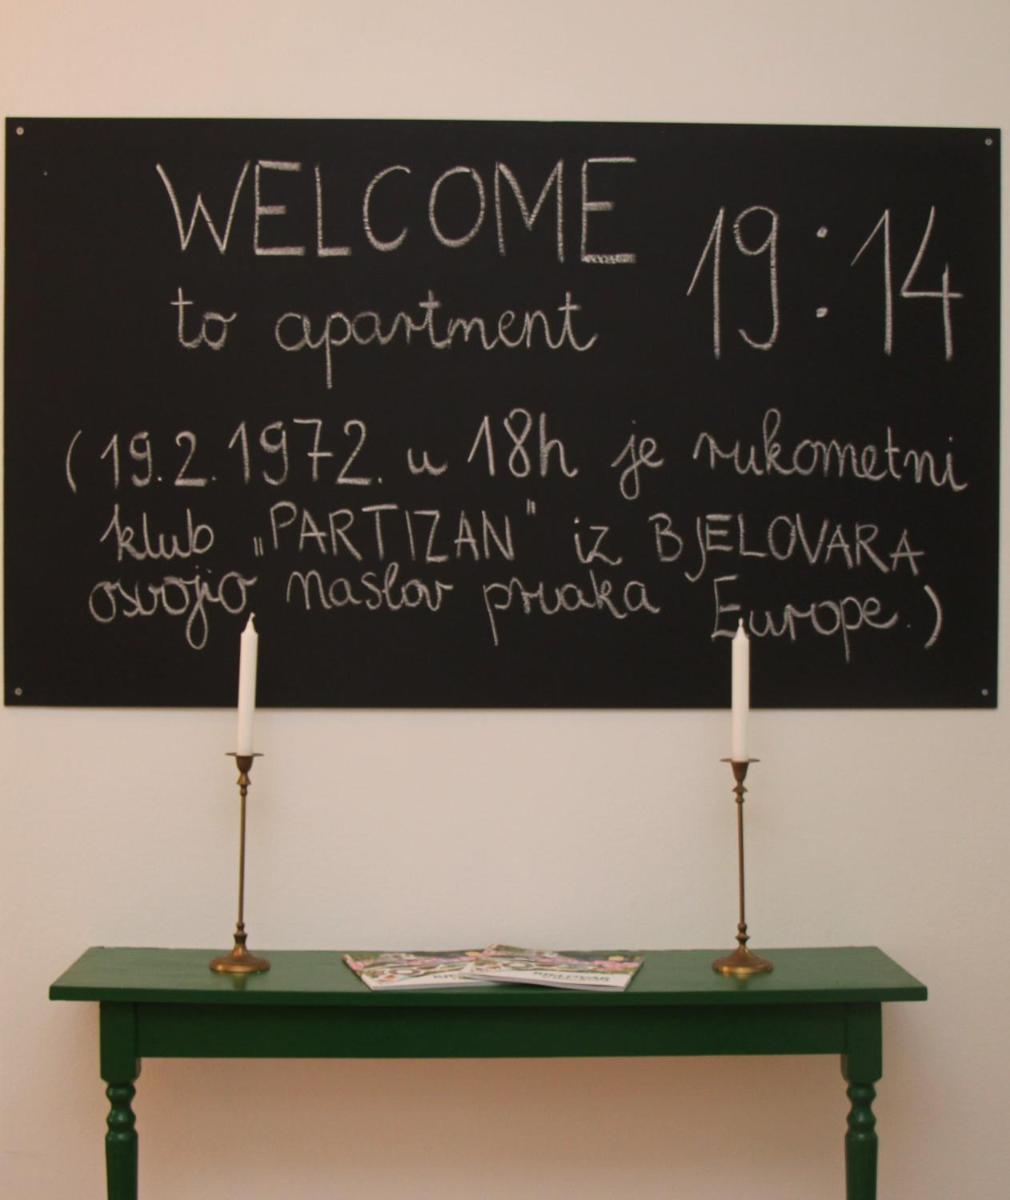 WELCOME
to apartment
19:14
(19.2.1972. u 18h je rukometni
klub „PARTIZAN" iz BJELOVARA
osvojio naslov prvaka Europe.)